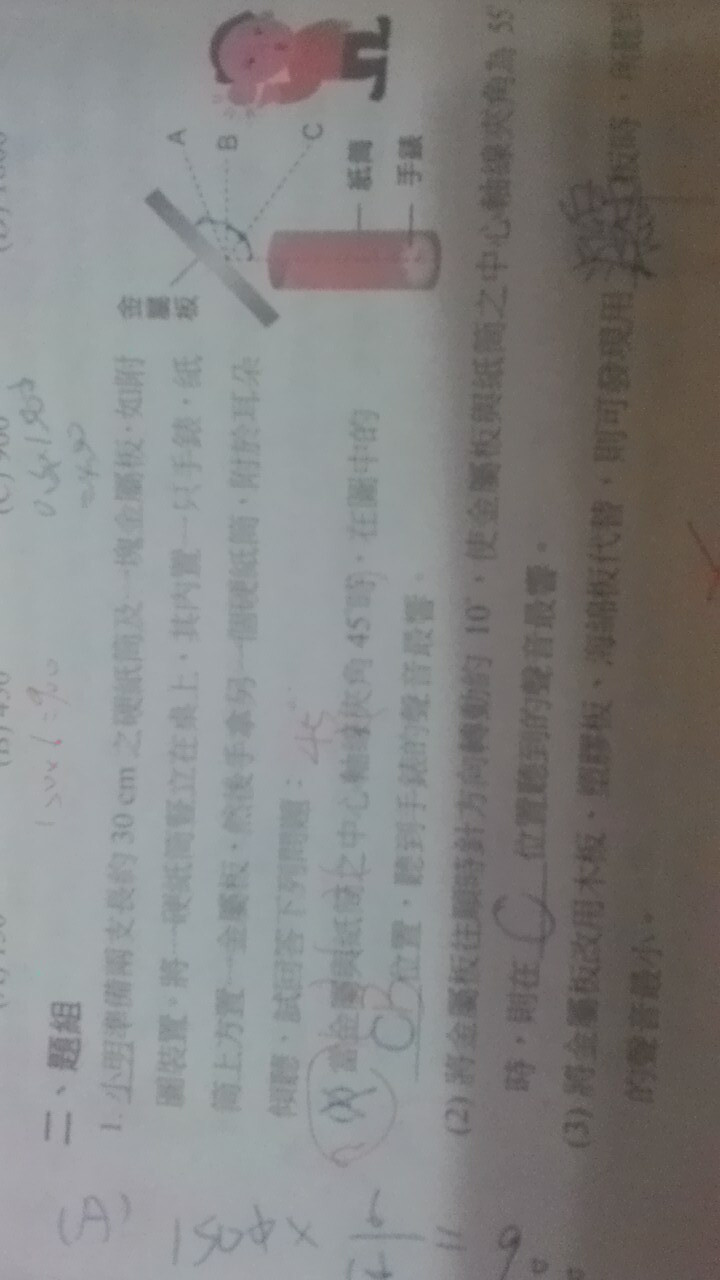 二、題組
1. 小明準備兩支長約 30 cm 之硬紙筒及一塊金屬板，如附
圖裝置。將一硬紙筒豎立在桌上，其內置一只手錶，紙
筒上方置一金屬板，然後手拿另一個硬紙筒，附於耳朵
傾聽，試回答下列問題：
當金屬與紙筒之中心軸線夾角 45°時，在圖中的
B 位置，聽到手錶的聲音最響。
(2) 將金屬板往順時針方向轉動約 10°，使金屬板與紙筒之中心軸線夾角為 55°
時，則在 C 位置聽到的聲音最響。
(3) 將金屬板改用木板、塑膠板、海綿板代替，則可發現用 板時，所聽到
的聲音最小。
金屬板
A
B
C
紙筒
手錶
45°
(A)